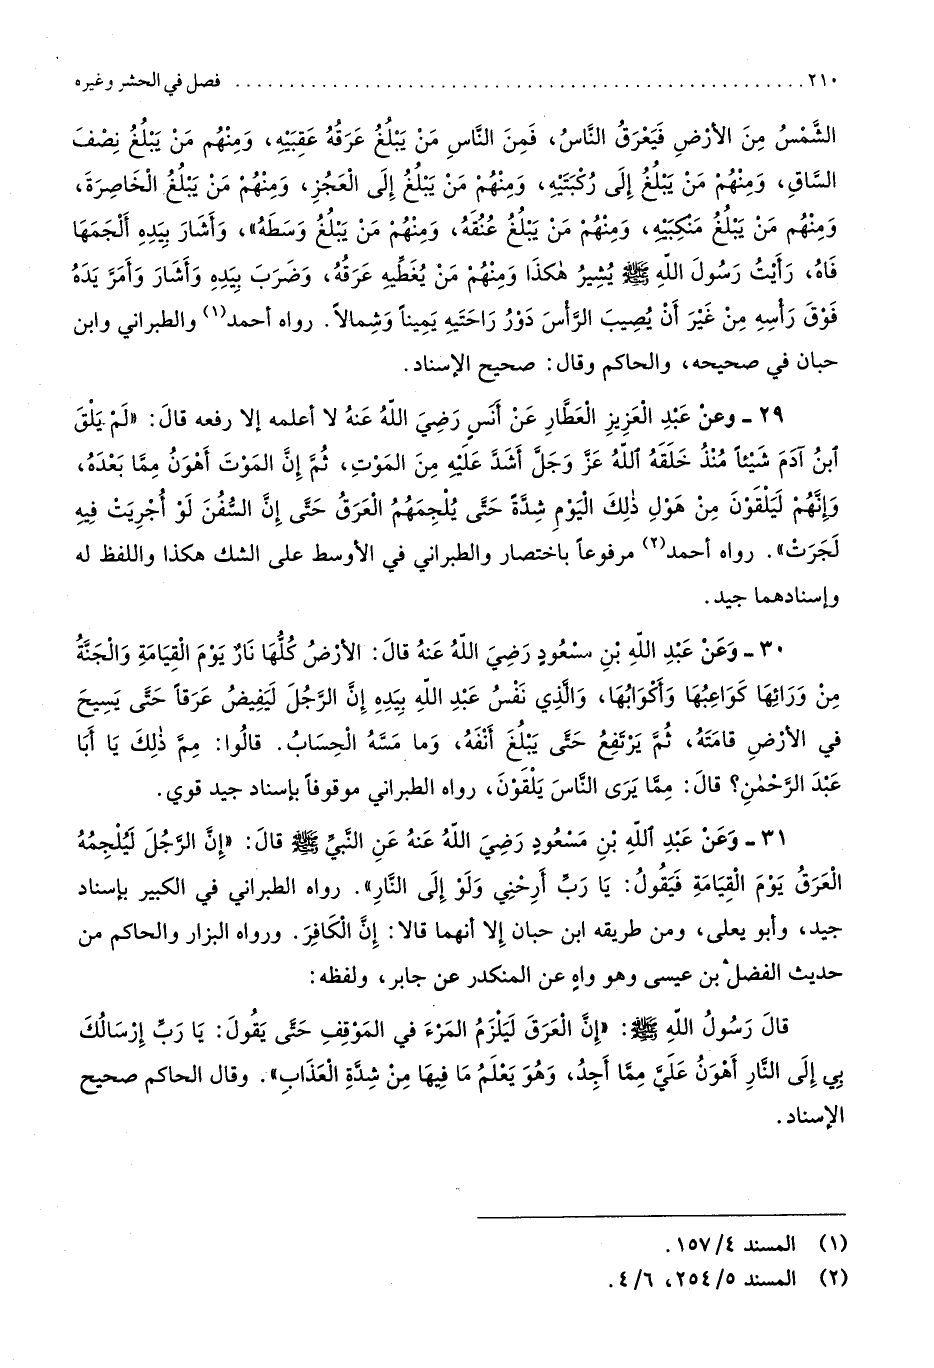 ٢١٠ ............................................................ فصل في الحشر وغيره
الشَّمْسُ مِنَ الأرْضِ فَيَعْرَقُ النَّاسُ، فَمِنَ النَّاسِ مَنْ يَبْلُغُ عَرَقُهُ عَقِبَيْهِ، وَمِنْهُم مَنْ يَبْلُغُ نِصْفَ
السَّاقِ، وَمِنْهُمْ مَنْ يَبْلُغُ إِلَى رُكْبَتَيْهِ، وَمِنْهُمْ مَنْ يَبْلُغُ إِلَى الْعَجُزِ، وَمِنْهُمْ مَنْ يَبْلُغُ الْخَاصِرَةَ،
وَمِنْهُم مَنْ يَبْلُغُ مَنْكِبَيْهِ، وَمِنْهُمْ مَنْ يَبْلُغُ عُنُقَهُ، وَمِنْهُمْ مَنْ يَبْلُغُ وَسَطَهُ»، وَأَشَارَ بِيَدِهِ أَلْجَمَهَا
فَاهُ، رَأَيْتُ رَسُولَ اللّهِ ﷺ يُشِيرُ هٰكَذَا وَمِنْهُمْ مَنْ يُغَطِّيهِ عَرَقُهُ، وَضَرَبَ بِيَدِهِ وَأَشَارَ وَأَمَرَّ يَدَهُ
فَوْقَ رَأْسِهِ مِنْ غَيْرَ أَنْ يُصِيبَ الرَّأْسَ دَوْرُ رَاحَتَيهِ يَمِيناً وَشِمالاً. رواه أحمد(١) والطبراني وابن
حبان في صحيحه، والحاكم وقال: صحيح الإسناد.
٢٩ ـ وعنْ عَبْدِ الْعَزِيزِ الْعَطَّارِ عَنْ أَنَسٍ رَضِيَ اللّهُ عَنهُ لا أعلمه إلا رفعه قالَ: «لَمْ يَلْقَ
ٱبنُ آدَمَ شَيْئاً مُنْذُ خَلَقَهُ ٱللّهُ عَزَّ وَجَلَّ أَشَدَّ عَلَيْهِ مِنَ المَوْتِ، ثُمَّ إِنَّ المَوْتَ أَهْوَنُ مِمَّا بَعْدَهُ،
وَإِنَّهُمْ لَيَلْقَوْنَ مِنْ هَوْلِ ذٰلِكَ الْيَوْمِ شِدَّةً حَتَّى يُلْجِمَهُمُ الْعَرَقُ حَتَّى إِنَّ السُّفُنَ لَوْ أُجْرِيَتْ فِيهِ
لَجَرَتْ». رواه أحمد(٢) مرفوعاً باختصار والطبراني في الأوسط على الشك هكذا واللفظ له
وإسنادهما جيد.
٣٠ ـ وَعَنْ عَبْدِ اللّهِ بْنِ مسْعُودٍ رَضِيَ اللّهُ عَنهُ قالَ: الأرْضُ كُلُّهَا نَارٌ يَوْمَ الْقِيَامَةِ وَالْجَنَّةُ
مِنْ وَرَائِهَا كَوَاعِبُهَا وَأَكْوَابُهَا، وَالَّذِي نَفْسُ عَبْدِ اللّهِ بِيَدِهِ إِنَّ الرَّجُلَ لَيَفِيضُ عَرَقاً حَتَّى يَسِيحَ
في الأرْضِ قامَتَهُ، ثُمَّ يَرْتَفِعُ حَتَّى يَبْلُغَ أَنْفَهُ، وَما مَسَّهُ الْحِسَابُ. قالُوا: مِمَّ ذٰلِكَ يَا أَبَا
عَبْدَ الرَّحْمٰنِ؟ قالَ: مِمَّا يَرَى النَّاسَ يَلْقَوْنَ، رواه الطبراني موقوفاً بإسناد جيد قوي.
٣١ ـ وَعَنْ عَبْدِ ٱللّهِ بْنِ مَسْعُودٍ رَضِيَ اللّهُ عَنهُ عَنِ النَّبيِّ ﷺ قالَ: «إِنَّ الرَّجُلَ لَيُلْجِمُهُ
الْعَرَقُ يَوْمَ الْقِيَامَةِ فَيَقُولُ: يَا رَبِّ أَرِحْنِي وَلَوْ إِلَى النَّارِ». رواه الطبراني في الكبير بإسناد
جيد، وأبو يعلى، ومن طريقه ابن حبان إلا أنهما قالا: إِنَّ الْكافِرَ. ورواه البزار والحاكم من
حديث الفضل بن عيسى وهو واهٍ عن المنكدر عن جابر، ولفظه:
قالَ رَسُولُ اللّهِ ﷺ: «إِنَّ الْعَرَقَ لَيَلْزَمُ المَرْءَ في المَوْقِفِ حَتَّى يَقُولَ: يَا رَبِّ إِرْسَالُكَ
بِي إِلَى النَّارِ أَهْوَنُ عَلَيَّ مِمَّا أَجِدُ، وَهُوَ يَعْلَمُ مَا فِيهَا مِنْ شِدَّةِ الْعَذَابِ». وقال الحاكم صحيح
الإسناد.
(١) المسند ٤/ ١٥٧.
(٢) المسند ٥/ ٢٥٤، ٦/ ٤.